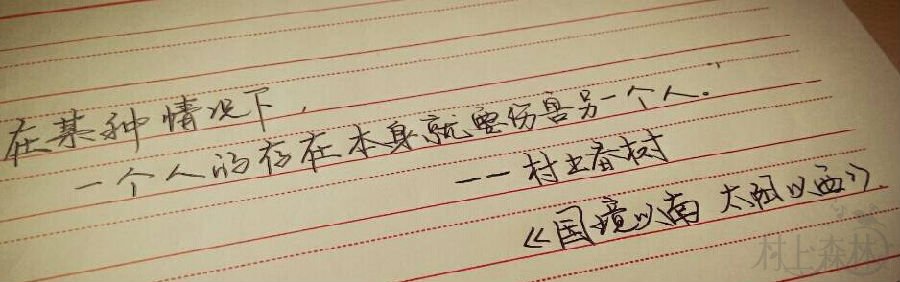 在某种情况下，
一个人的存在本身就要伤害另一个人.
——村上春树
《国境以南 太阳以西》.
村上森林